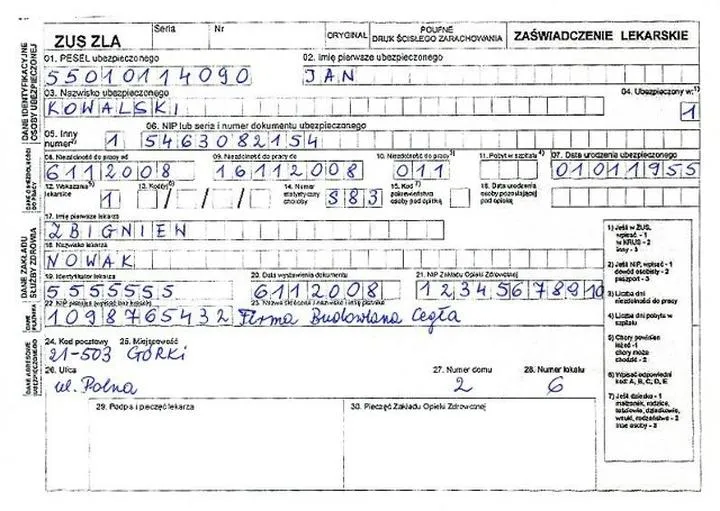 ZUS ZLA Seria Nr ORYGINAŁ POUFNE DRUK ŚCISŁEGO ZARACHOWANIA ZAŚWIADCZENIE LEKARSKIE
01. PESEL ubezpieczonego 02. Imię pierwsze ubezpieczonego
55010114090 JAN
03. Nazwisko ubezpieczonego 04. Ubezpieczony w:1)
KOWALSKI 1
05. Inny numer2) 06. NIP lub seria i numer dokumentu ubezpieczonego
1 5463082154
08. Niezdolność do pracy od 09. Niezdolność do pracy do 10. Niezdolność do pracy3) 11. Pobyt w szpitalu4) 07. Data urodzenia ubezpieczonego
6112008 16112008 011 01011955
12. Wskazania lekarskie5) 13. Kod(y)6) 14. Numer statystyczny choroby 15. Kod7) pokrewieństwa osoby pod opieką 16. Data urodzenia osoby pozostającej pod opieką
1 / / / S83
17. Imię pierwsze lekarza
ZBIGNIEW
18. Nazwisko lekarza
NOWAK
19. Identyfikator lekarza 20. Data wystawienia dokumentu 21. NIP Zakładu Opieki Zdrowotnej
5555555 6112008 12345678910
22. NIP płatnika (wpisać bez kresek)
1098765432 Firma Budowlana Cegła
24. Kod pocztowy 25. Miejscowość
21-503 GÓRKI
26. Ulica 27. Numer domu 28. Numer lokalu
ul. Polna 2 6
29. Podpis i pieczęć lekarza 30. Pieczęć Zakładu Opieki Zdrowotnej
DANE IDENTYFIKACYJNE OSOBY UBEZPIECZONEJ
DANE O NIEZDOLNOŚCI DO PRACY
DANE ZAKŁADU SŁUŻBY ZDROWIA
DANE PŁATNIKA
DANE ADRESOWE UBEZPIECZONEGO
1) Jeśli w ZUS,
wpisać - 1
w KRUS - 2
inny - 3
2) Jeśli NIP, wpisać - 1
dowód osobisty - 2
paszport - 3
3) Liczba dni
niezdolności do pracy
4) Liczba dni pobytu w
szpitalu
5) Chory powinien
leżeć - 1
chory może
chodzić - 2
6) Wpisać odpowiedni
kod: A, B, C, D, E
7) Jeśli dziecko - 1
małżonek, rodzice,
teściowie, dziadkowie,
wnuki, rodzeństwo - 2
inne osoby - 3